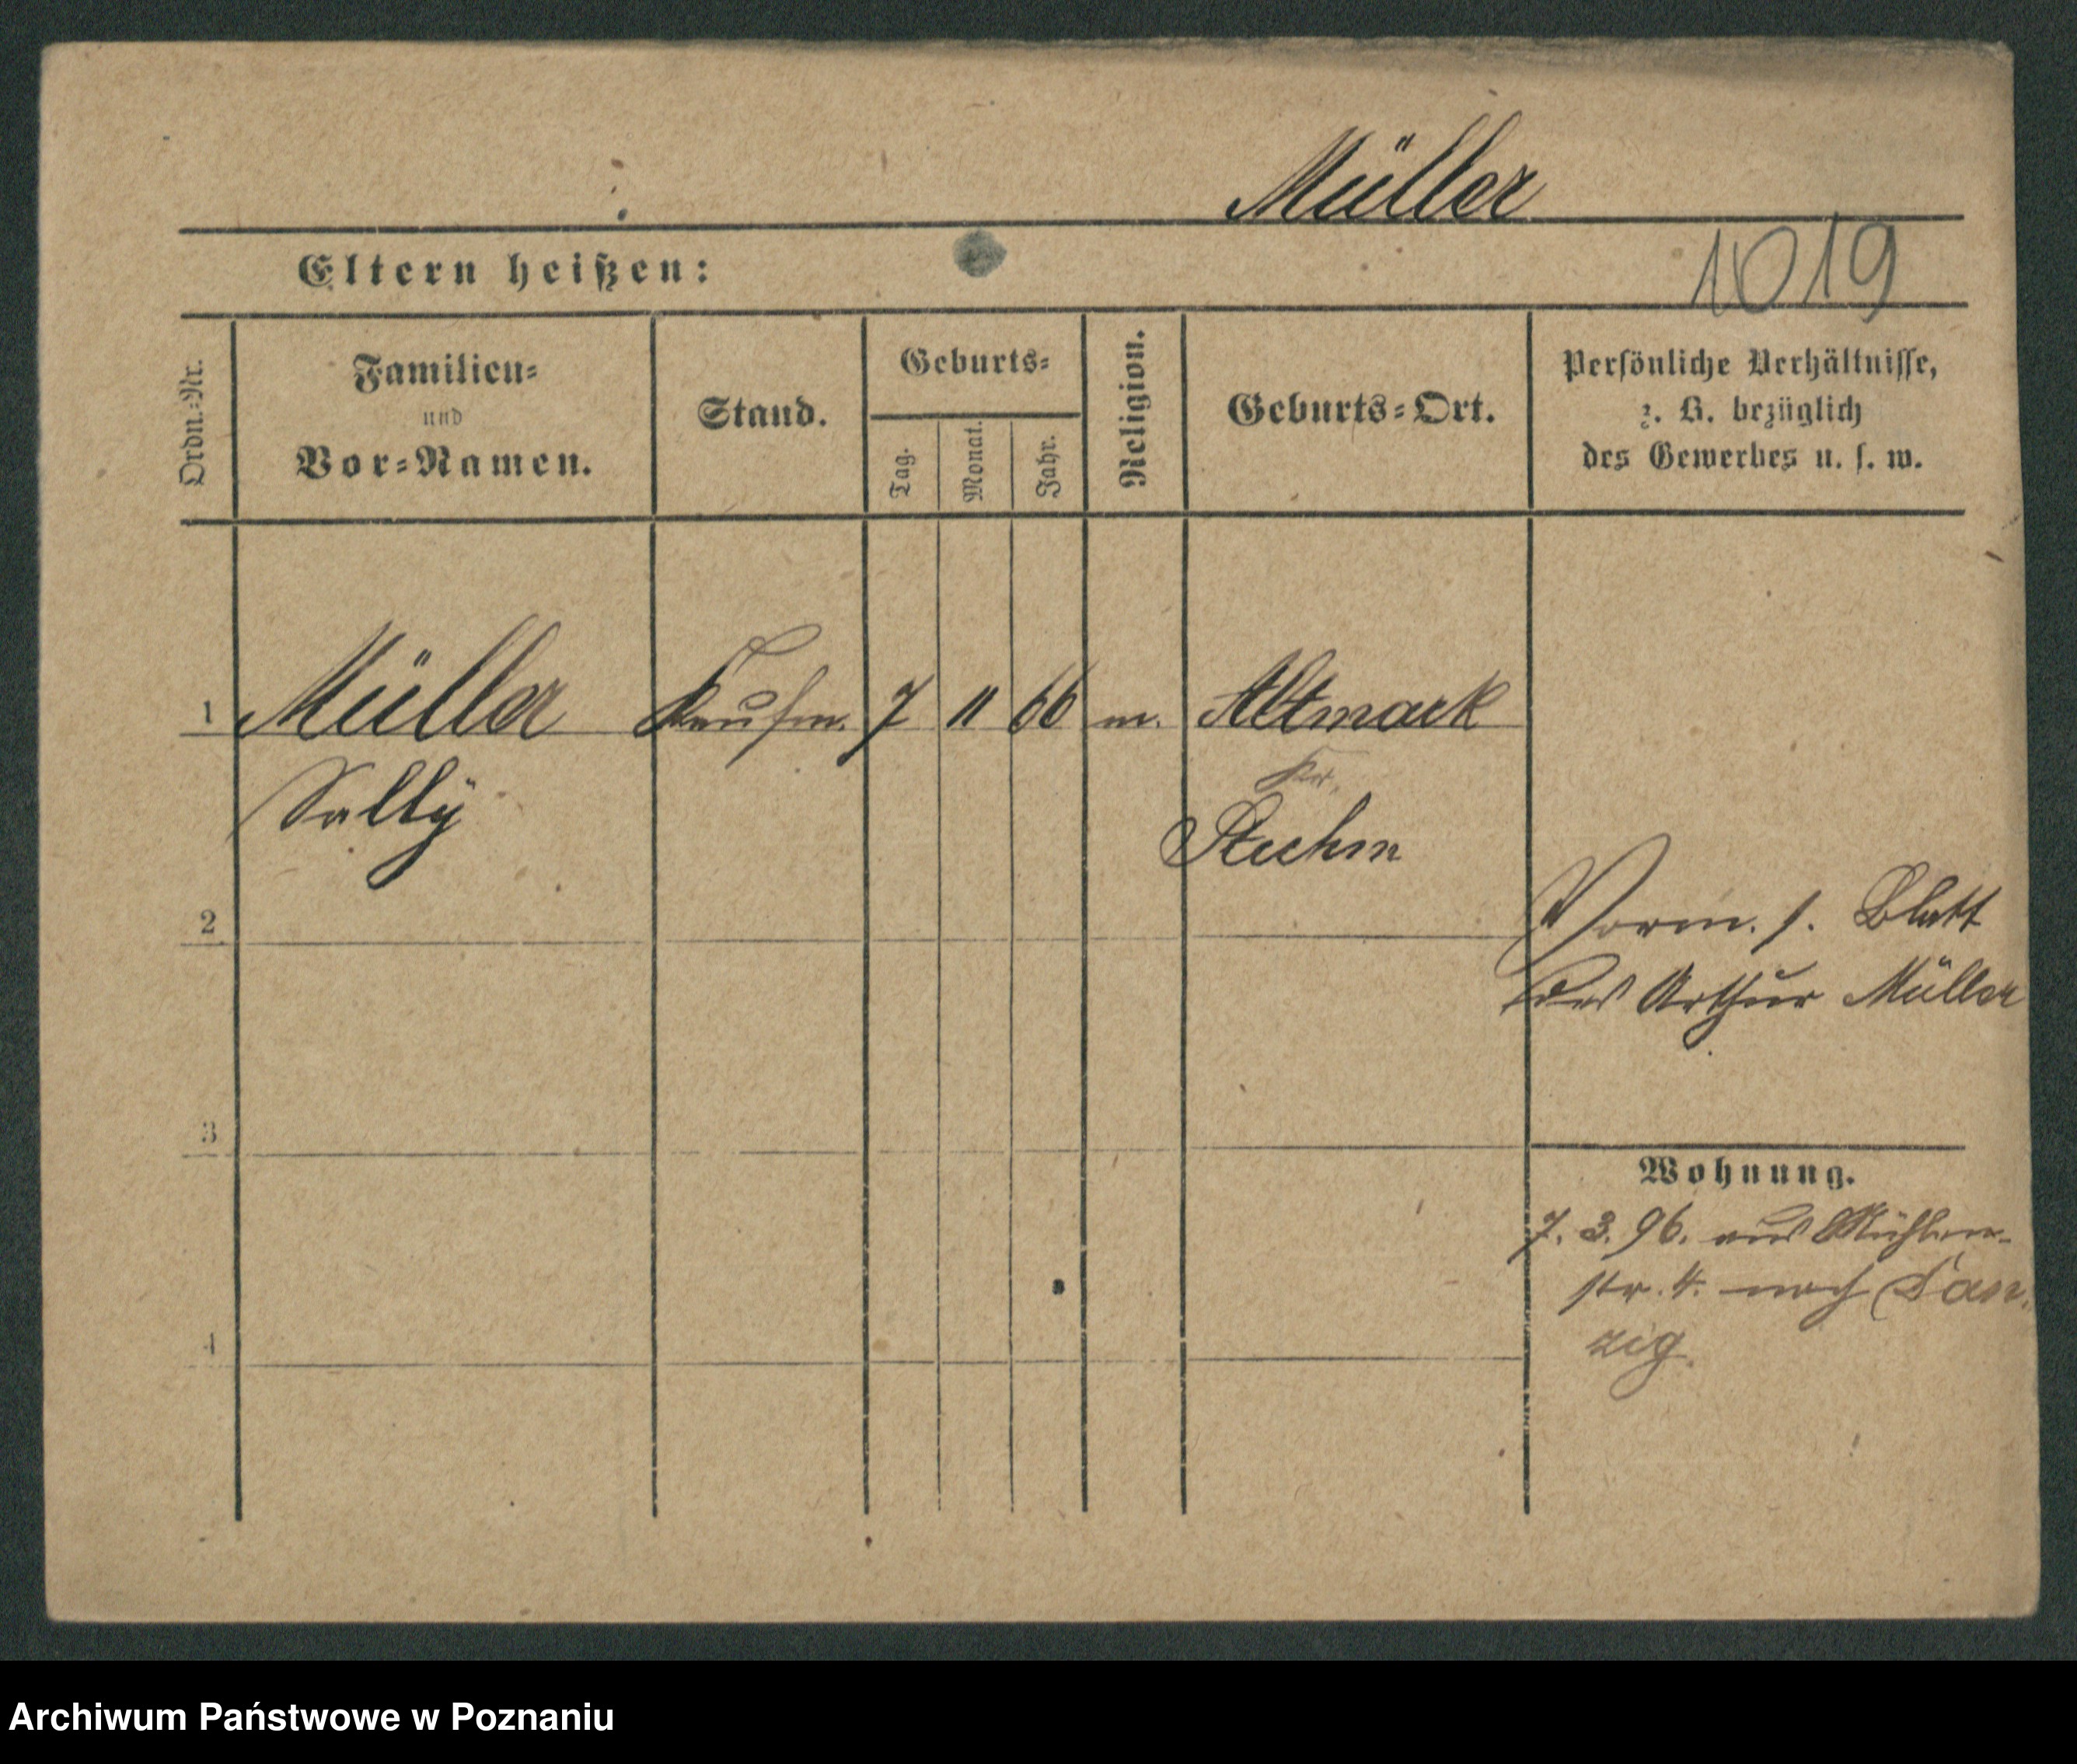 Müller
Eltern heißen:
1019
Ordn.=Nr.
Familien=
und
Vor=Namen.
Stand.
Geburts=
Tag.
Monat.
Jahr.
Religion.
Geburts=Ort.
Persönliche Verhältnisse,
z. B. bezüglich
des Gewerbes u. s. w.
1 Müller Kaufm. 7 11 66 m. Altmark
Sally
Kr.
Stuhm
2
Vorm. s. Blatt
des Arthur Müller
3
Wohnung.
7. 3. 96. aus Mühlen-
str. 4. nach Dan-
zig.
4
Archiwum Państwowe w Poznaniu